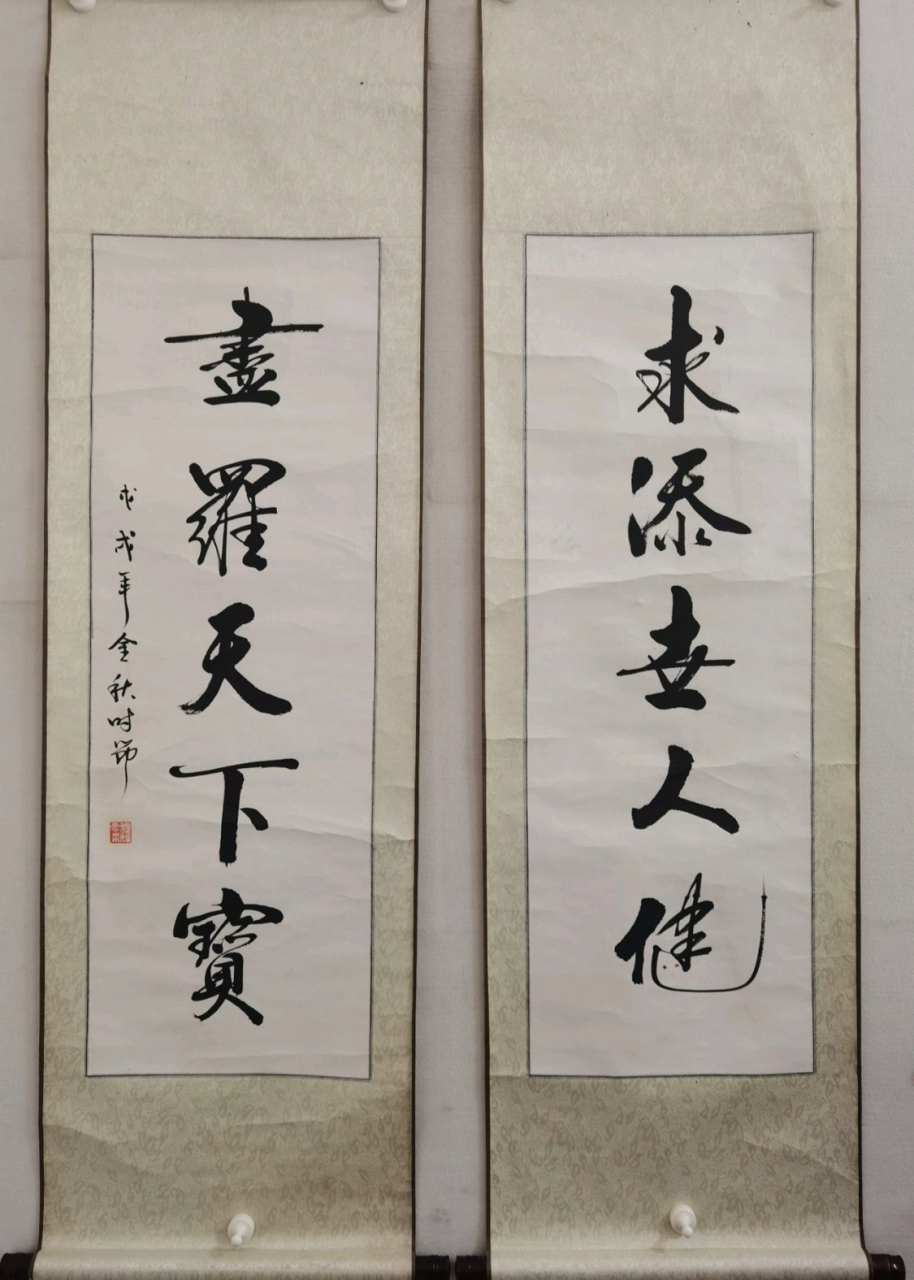 求添世人健
盡羅天下寶
戊戌年金秋時節